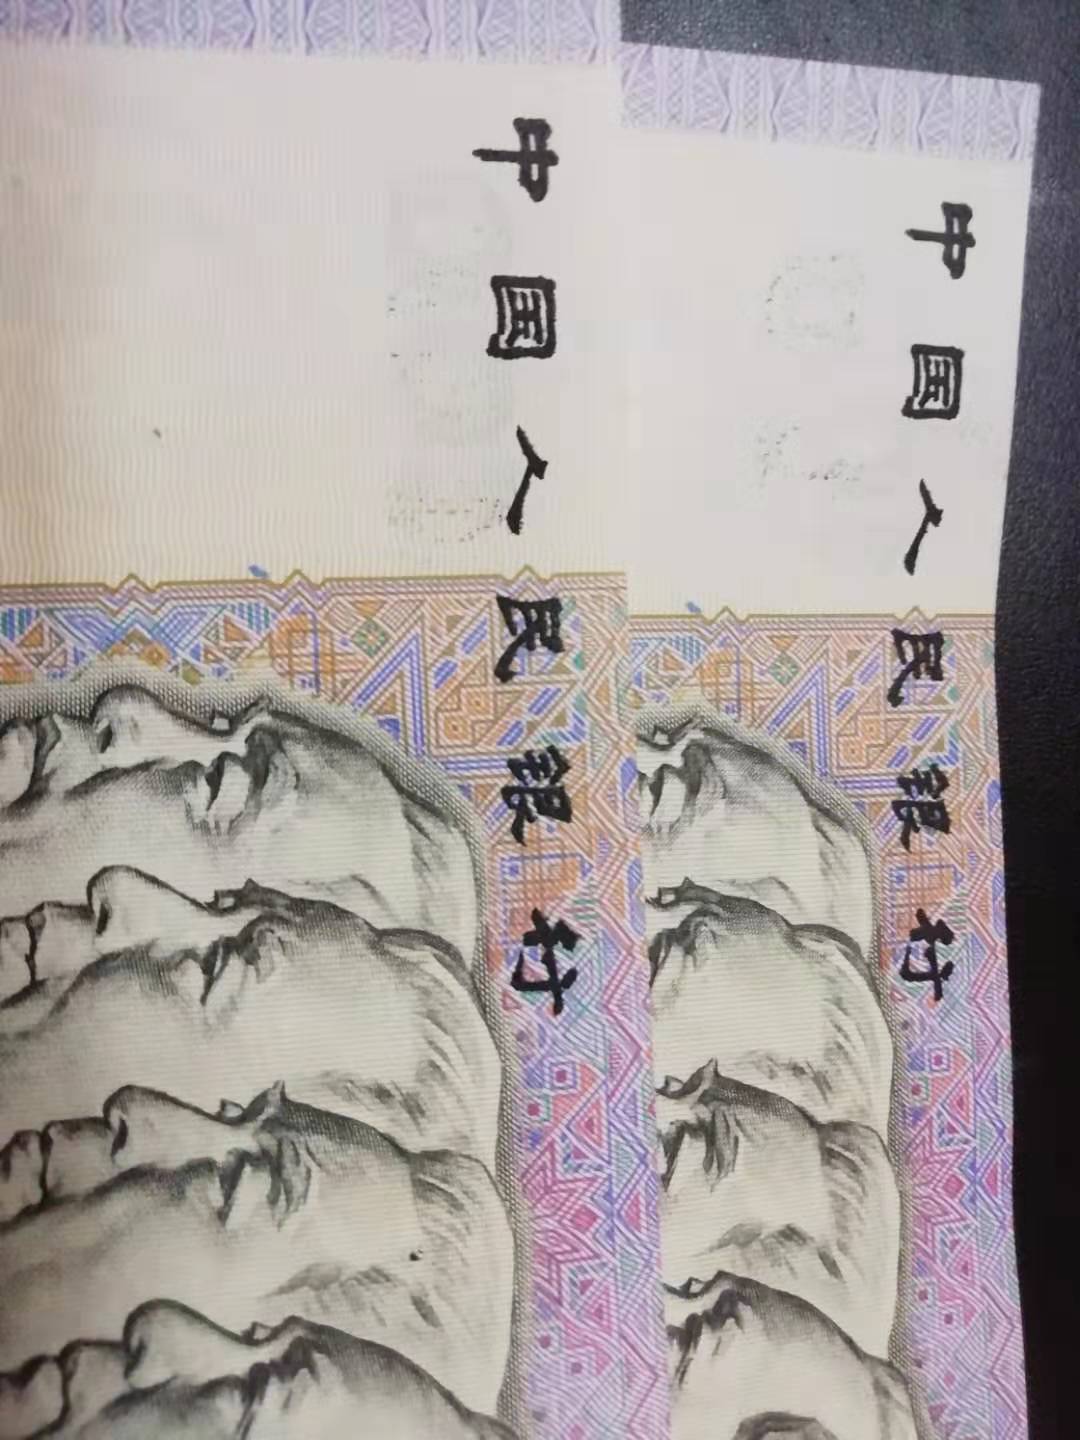 中国人民银行
中国人民银行